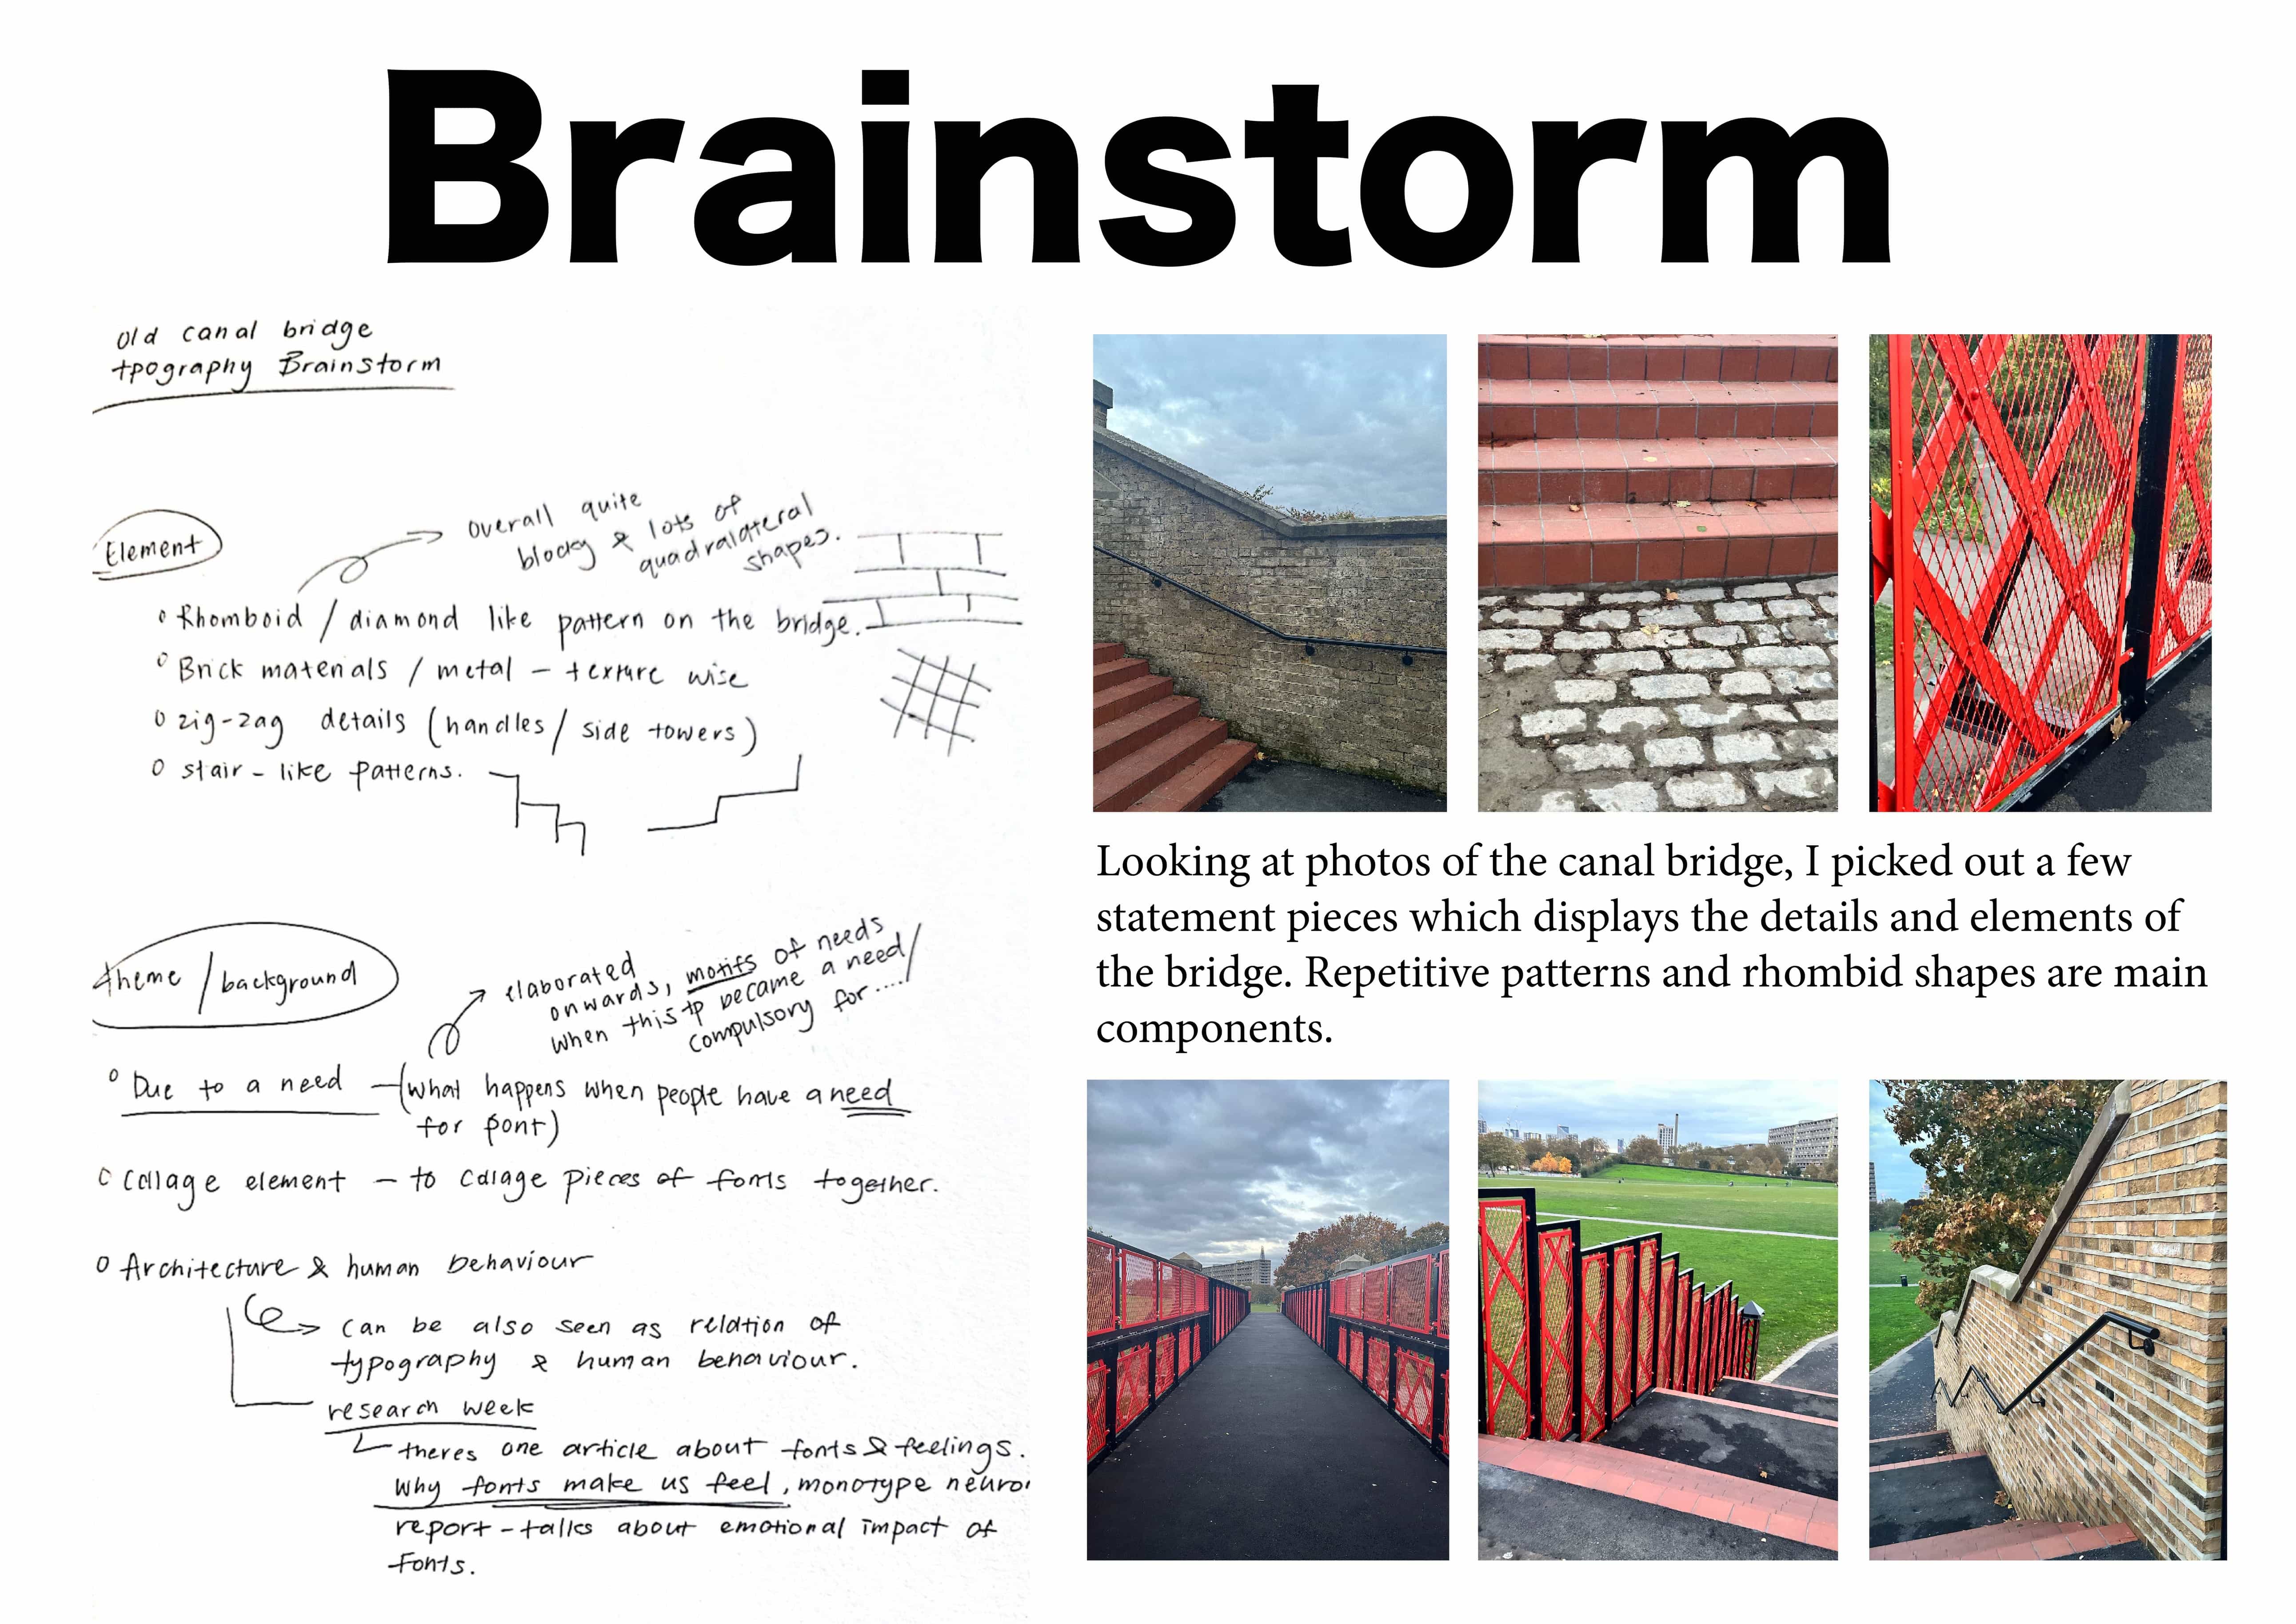 Brainstorm
old canal bridge
tpography Brainstorm
Element
overall quite
blocky & lots of
quadralateral
shapes.
Rhomboid / diamond like pattern on the bridge.
Brick materials / metal - texture wise
zig-zag details (handles / side towers)
stair-like patterns.
theme / background
elaborated
onwards, motifs of needs
when this tp became a need /
compulsory for ..... /
Due to a need - (what happens when people have a need
for font)
Collage element - to collage pieces of fonts together.
Architecture & human behaviour
can be also seen as relation of
typography & human behaviour.
research week
theres one article about fonts & feelings.
Why fonts make us feel, monotype neuro
report - talks about emotional impact of
fonts.
Looking at photos of the canal bridge, I picked out a few
statement pieces which displays the details and elements of
the bridge. Repetitive patterns and rhombid shapes are main
components.